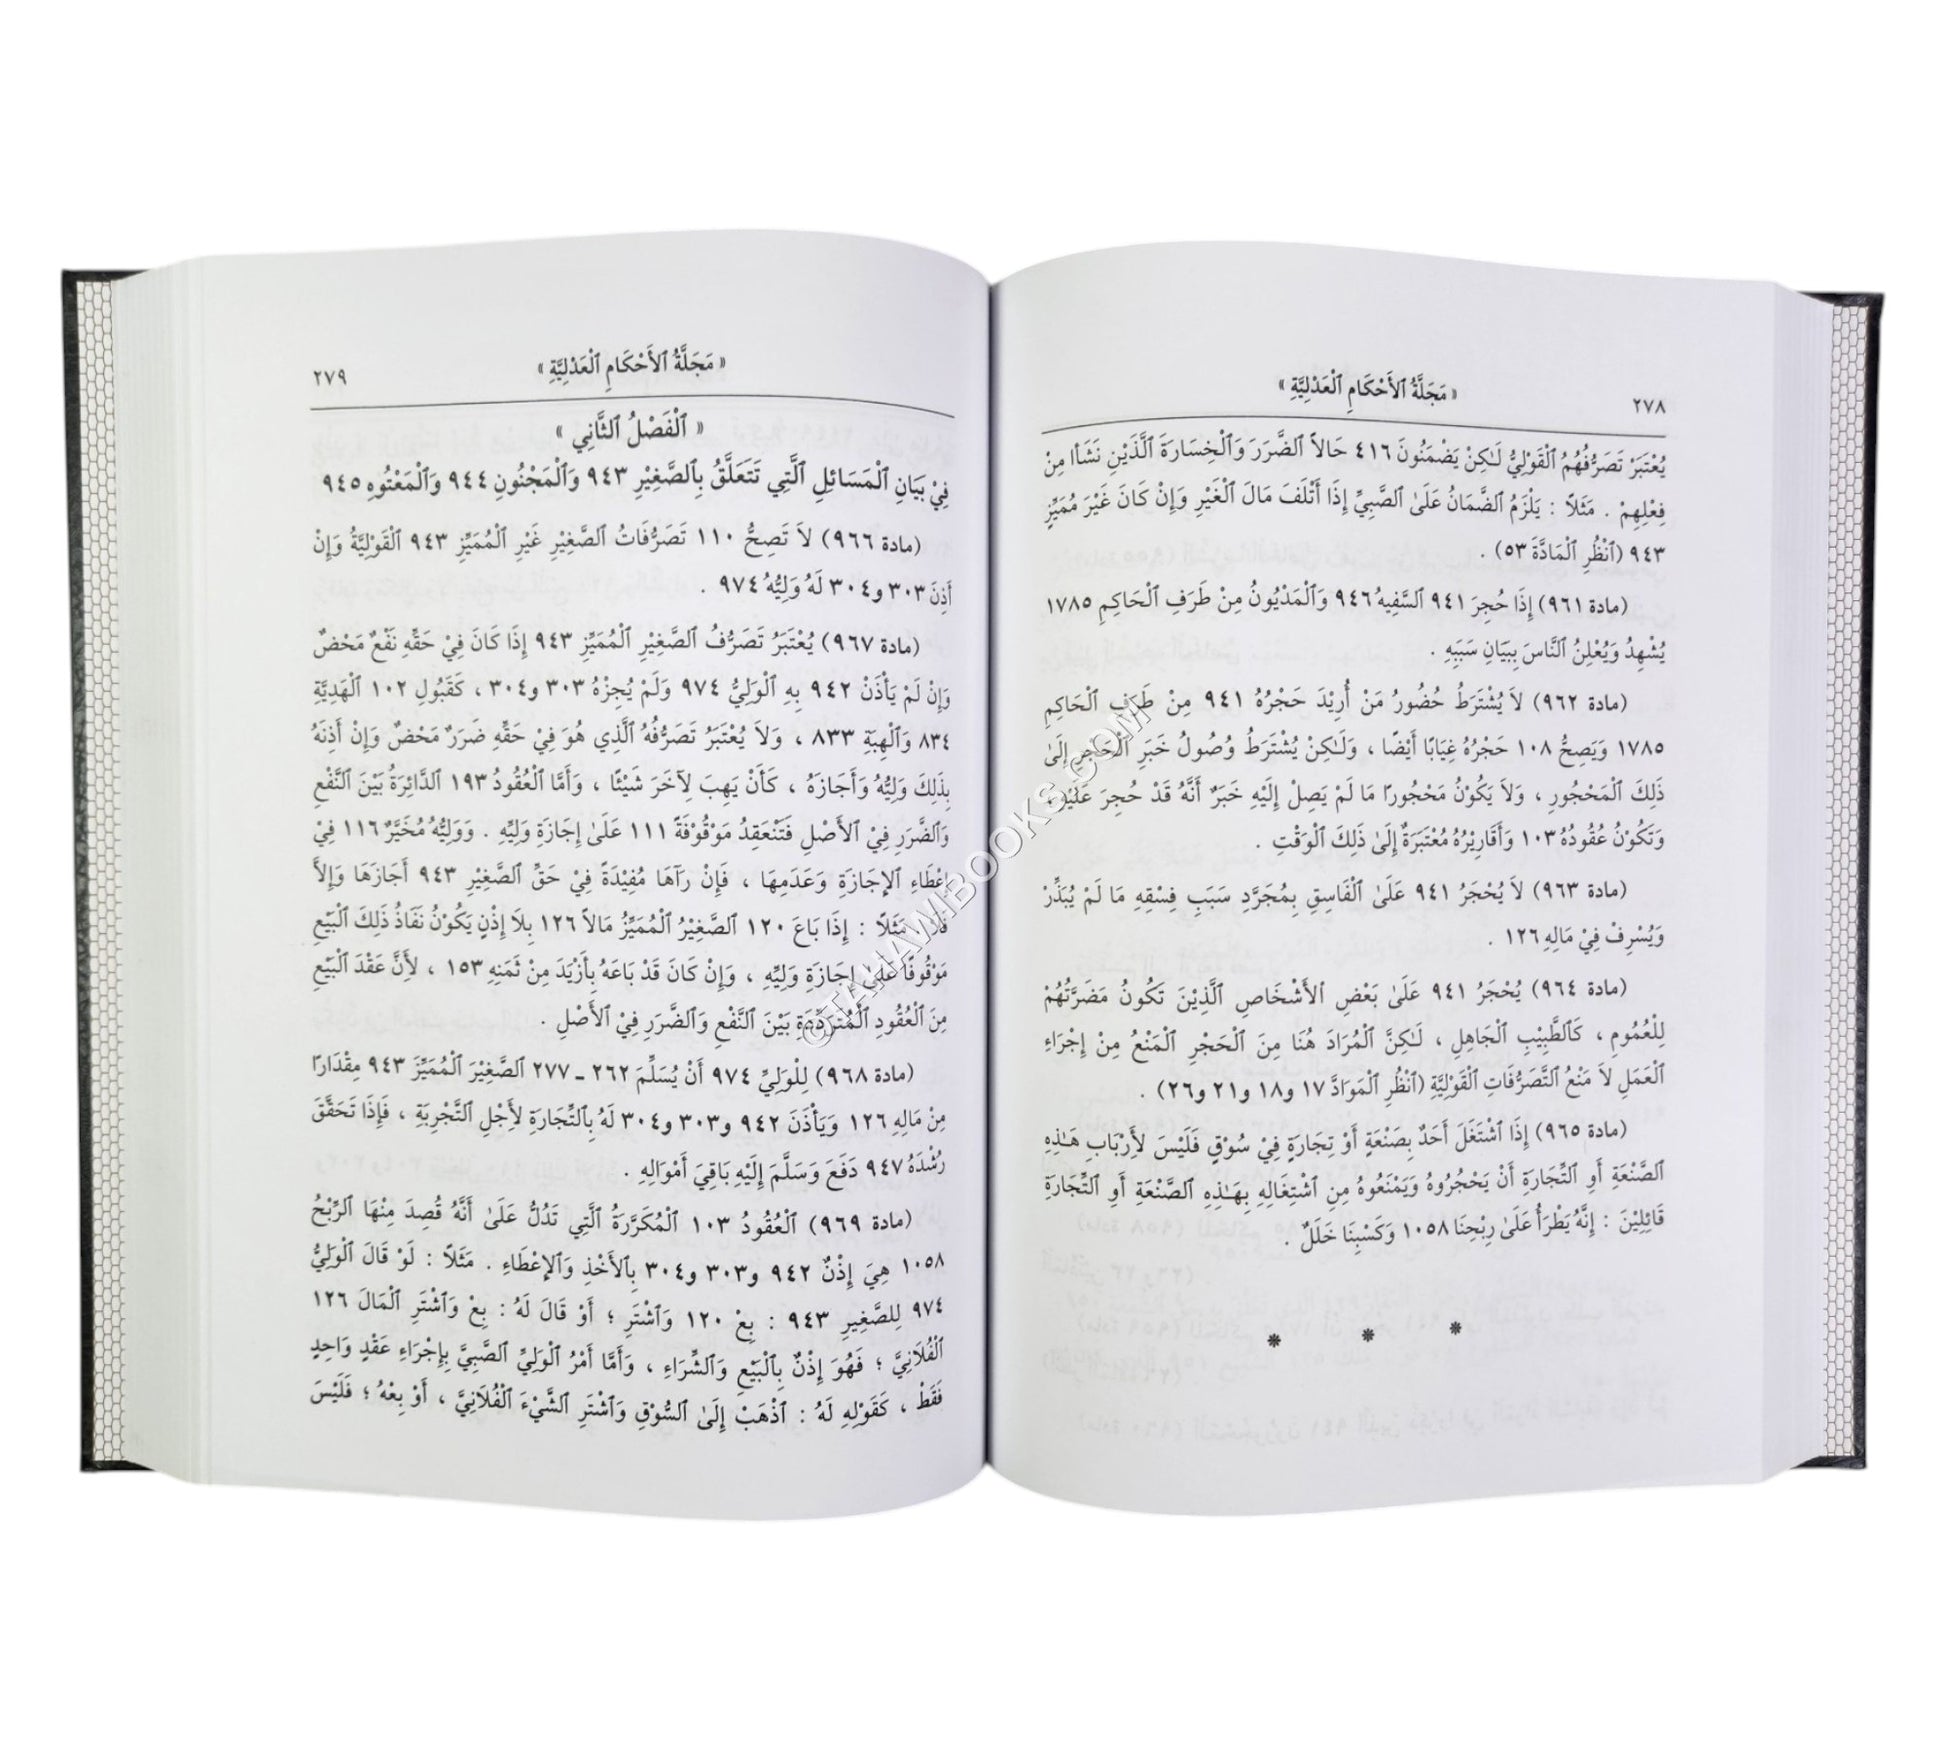 ٢٧٨
« مَجَلَّةُ ٱلأَحْكَامِ ٱلْعَدْلِيَّةِ »
يُعْتَبَرْ تَصَرُّفُهُمُ ٱلْقَوْلِيُّ لَـٰكِنْ يَضْمَنُونَ ٤١٦ حَالاً ٱلضَّرَرَ وَٱلْخِسَارَةَ ٱلَّذَيْنِ نَشَأٱ مِنْ
فِعْلِهِمْ . مَثَلاً : يَلْزَمُ ٱلضَّمَانُ عَلَىٰ ٱلصَّبِيِّ إِذَا أَتْلَفَ مَالَ ٱلْغَيْرِ وَإِنْ كَانَ غَيْرَ مُمَيِّزٍ
٩٤٣ (ٱنْظُرِ ٱلْمَادَّةَ ٥٣) .
(مادة ٩٦١) إِذَا حُجِرَ ٩٤١ ٱلسَّفِيهُ ٩٤٦ وَٱلْمَدْيُونُ مِنْ طَرَفِ ٱلْحَاكِمِ ١٧٨٥
يُشْهِدُ وَيُعْلِنُ ٱلنَّاسَ بِبَيَانِ سَبَبِهِ .
(مادة ٩٦٢) لاَ يُشْتَرَطُ حُضُورُ مَنْ أُرِيْدَ حَجْرُهُ ٩٤١ مِنْ طَرَفِ ٱلْحَاكِمِ
١٧٨٥ وَيَصِحُّ ١٠٨ حَجْرُهُ غِيَابًا أَيْضًا ، وَلَـٰكِنْ يُشْتَرَطُ وُصُولُ خَبَرِ ٱلْحَجْرِ إِلَىٰ
ذَلِكَ ٱلْمَحْجُورِ ، وَلاَ يَكُوْنُ مَحْجُورًا مَا لَمْ يَصِلْ إِلَيْهِ خَبَرُ أَنَّهُ قَدْ حُجِرَ عَلَيْهِ ،
وَتَكُوْنُ عُقُودُهُ ١٠٣ وَأَقَارِيْرُهُ مُعْتَبَرَةً إِلَىٰ ذَلِكَ ٱلْوَقْتِ .
(مادة ٩٦٣) لاَ يُحْجَرُ ٩٤١ عَلَىٰ ٱلْفَاسِقِ بِمُجَرَّدِ سَبَبِ فِسْقِهِ مَا لَمْ يُبَذِّرْ
وَيُسْرِفْ فِيْ مَالِهِ ١٢٦ .
(مادة ٩٦٤) يُحْجَرُ ٩٤١ عَلَىٰ بَعْضِ ٱلأَشْخَاصِ ٱلَّذِيْنَ تَكُونُ مَضَرَّتُهُمْ
لِلْعُمُومِ ، كَٱلطَّبِيْبِ ٱلْجَاهِلِ ، لَـٰكِنَّ ٱلْمُرَادَ هُنَا مِنَ ٱلْحَجْرِ ٱلْمَنْعُ مِنْ إِجْرَاءِ
ٱلْعَمَلِ لاَ مَنْعُ ٱلتَّصَرُّفَاتِ ٱلْقَوْلِيَّةِ (ٱنْظُرِ ٱلْمَوَادَّ ١٧ و١٨ و٢١ و٢٦) .
(مادة ٩٦٥) إِذَا ٱشْتَغَلَ أَحَدٌ بِصَنْعَةٍ أَوْ تِجَارَةٍ فِيْ سُوْقٍ فَلَيْسَ لأَرْبَابِ هَـٰذِهِ
ٱلصَّنْعَةِ أَوِ ٱلتِّجَارَةِ أَنْ يَحْجُرُوهُ وَيَمْنَعُوهُ مِنِ ٱشْتِغَالِهِ بِهَـٰذِهِ ٱلصَّنْعَةِ أَوِ ٱلتِّجَارَةِ
قَائِلِيْنَ : إِنَّهُ يَطْرَأُ عَلَىٰ رِبْحِنَا ١٠٥٨ وَكَسْبِنَا خَلَلٌ .
* * *
« مَجَلَّةُ ٱلأَحْكَامِ ٱلْعَدْلِيَّةِ »
٢٧٩
« ٱلْفَصْلُ ٱلثَّانِي »
فِيْ بَيَانِ ٱلْمَسَائِلِ ٱلَّتِي تَتَعَلَّقُ بِٱلصَّغِيْرِ ٩٤٣ وَٱلْمَجْنُونِ ٩٤٤ وَٱلْمَعْتُوهِ ٩٤٥
(مادة ٩٦٦) لاَ تَصِحُّ ١١٠ تَصَرُّفَاتُ ٱلصَّغِيْرِ غَيْرِ ٱلْمُمَيِّزِ ٩٤٣ ٱلْقَوْلِيَّةُ وَإِنْ
أَذِنَ ٣٠٣ و٣٠٤ لَهُ وَلِيُّهُ ٩٧٤ .
(مادة ٩٦٧) يُعْتَبَرُ تَصَرُّفُ ٱلصَّغِيْرِ ٱلْمُمَيِّزِ ٩٤٣ إِذَا كَانَ فِيْ حَقِّهِ نَفْعٌ مَحْضٌ
وَإِنْ لَمْ يَأْذَنْ ٩٤٢ بِهِ ٱلْوَلِيُّ ٩٧٤ وَلَمْ يُجِزْهُ ٣٠٣ و٣٠٤ ، كَقَبُولِ ١٠٢ ٱلْهَدِيَّةِ
٨٣٤ وَٱلْهِبَةِ ٨٣٣ ، وَلاَ يُعْتَبَرُ تَصَرُّفُهُ ٱلَّذِي هُوَ فِيْ حَقِّهِ ضَرَرٌ مَحْضٌ وَإِنْ أَذِنَهُ
بِذَلِكَ وَلِيُّهُ وَأَجَازَهُ ، كَأَنْ يَهِبَ لِآخَرَ شَيْئًا ، وَأَمَّا ٱلْعُقُودُ ١٩٣ ٱلدَّائِرَةُ بَيْنَ ٱلنَّفْعِ
وَٱلضَّرَرِ فِيْ ٱلأَصْلِ فَتَنْعَقِدُ مَوْقُوفَةً ١١١ عَلَىٰ إِجَازَةِ وَلِيِّهِ . وَوَلِيُّهُ مُخَيَّرٌ ١١٦ فِيْ
إِعْطَاءِ ٱلإِجَازَةِ وَعَدَمِهَا ، فَإِنْ رَآهَا مُفِيْدَةً فِيْ حَقِّ ٱلصَّغِيْرِ ٩٤٣ أَجَازَهَا وَإِلاَّ
فَلاَ . مَثَلاً : إِذَا بَاعَ ١٢٠ ٱلصَّغِيْرُ ٱلْمُمَيِّزُ مَالاً ١٢٦ بِلاَ إِذْنٍ يَكُوْنُ نَفَاذُ ذَلِكَ ٱلْبَيْعِ
مَوْقُوفًا عَلَىٰ إِجَازَةِ وَلِيِّهِ ، وَإِنْ كَانَ قَدْ بَاعَهُ بِأَزْيَدَ مِنْ ثَمَنِهِ ١٥٣ ، لأَنَّ عَقْدَ ٱلْبَيْعِ
مِنَ ٱلْعُقُودِ ٱلْمُتَرَدِّدَةِ بَيْنَ ٱلنَّفْعِ وَٱلضَّرَرِ فِيْ ٱلأَصْلِ .
(مادة ٩٦٨) لِلْوَلِيِّ ٩٧٤ أَنْ يُسَلِّمَ ٢٦٢ ـ ٢٧٧ ٱلصَّغِيْرَ ٱلْمُمَيِّزَ ٩٤٣ مِقْدَارًا
مِنْ مَالِهِ ١٢٦ وَيَأْذَنَ ٩٤٢ و٣٠٣ و٣٠٤ لَهُ بِٱلتِّجَارَةِ لأَجْلِ ٱلتَّجْرِبَةِ ، فَإِذَا تَحَقَّقَ
رُشْدَهُ ٩٤٧ دَفَعَ وَسَلَّمَ إِلَيْهِ بَاقِيَ أَمْوَالِهِ .
(مادة ٩٦٩) ٱلْعُقُودُ ١٠٣ ٱلْمُكَرَّرَةُ ٱلَّتِي تَدُلُّ عَلَىٰ أَنَّهُ قُصِدَ مِنْهَا ٱلرِّبْحُ
١٠٥٨ هِيَ إِذْنٌ ٩٤٢ و٣٠٣ و٣٠٤ بِٱلأَخْذِ وَٱلإِعْطَاءِ . مَثَلاً : لَوْ قَالَ ٱلْوَلِيُّ
٩٧٤ لِلصَّغِيْرِ ٩٤٣ : بِعْ ١٢٠ وَٱشْتَرِ ؛ أَوْ قَالَ لَهُ : بِعْ وَٱشْتَرِ ٱلْمَالَ ١٢٦
ٱلْفُلاَنِيَّ ؛ فَهُوَ إِذْنٌ بِٱلْبَيْعِ وَٱلشِّرَاءِ ، وَأَمَّا أَمْرُ ٱلْوَلِيِّ ٱلصَّبِيَّ بِإِجْرَاءِ عَقْدٍ وَاحِدٍ
فَقَطْ ، كَقَوْلِهِ لَهُ : ٱذْهَبْ إِلَىٰ ٱلسُّوْقِ وَٱشْتَرِ ٱلشَّيْءَ ٱلْفُلاَنِيَّ ، أَوْ بِعْهُ ؛ فَلَيْسَ
©TAHAMBOOKS.COM